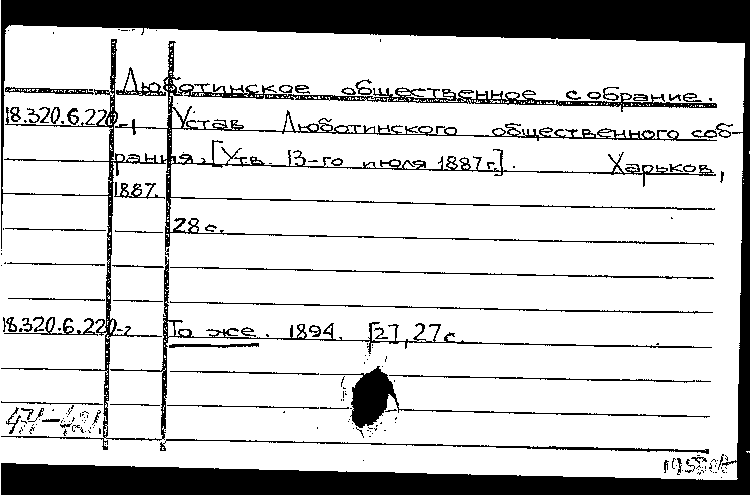 Люботинское общественное собрание.
18.320.6.220-1 Устав Люботинского общественного соб-
рания. [Утв. 13-го июля 1887 г.]. Харьков,
1887.
28 с.
18.320.6.220-2 То же. 1894. [2], 27 с.